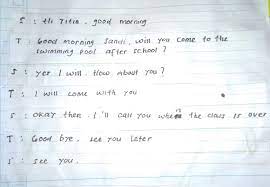 S : Hi Titin, good morning
T : Good morning Sandi, will you come to the
swimming pool after school ?
S : yes I will. How about you ?
T : I will come with you
S : okay then. I 'll call you when the class is over
T : Good bye, see you later
S : see you.